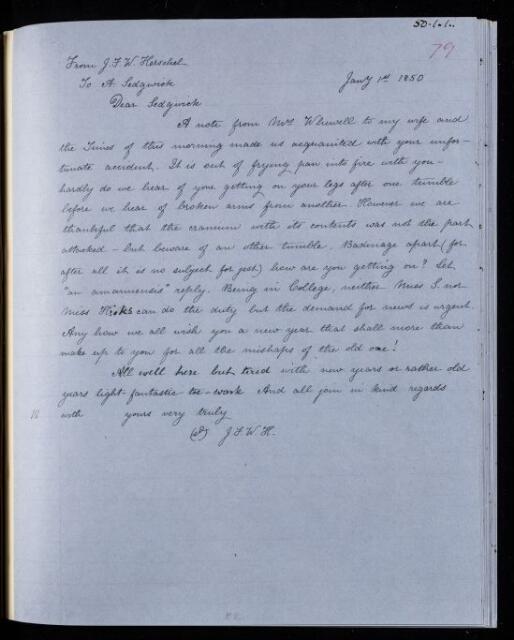 50.1.1.
79
From J.F.W. Herschel
To A. Sedgwick Jany 1st 1850
Dear Sedgwick
A note from Mrs Whewell to my wife and
the Times of this morning made us acquainted with your unfor-
tunate accident. It is out of frying pan into fire with you -
hardly do we hear of your getting on your legs after one tumble
before we hear of broken arms from another. However we are
thankful that the cranium with its contents was not the part
attacked - but beware of an other tumble. Badinage apart (for
after all it is no subject for jest) how are you getting on? Let
"an amanuensis" reply. Being in College, neither Miss S. nor
Miss Hicks can do the duty but the demand for news is urgent.
Any how we all wish you a new year that shall more than
make up to you for all the mishaps of the old one!
All well here but tired with new years or rather old
years light-fantastic toe-work And all join in kind regards
with yours very truly
J F W H.